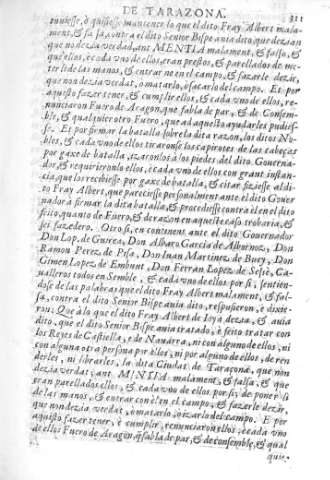 DE TARAZONA.
321
tuuiesse, ò quisiesse mantener lo que el dito Fray Albert mala-
ment, & falsa, contra el dito Senior Bispe auia dito, que dezian
que no dezia verdad, ant MENTIA malament, & falso, &
que ellos, e cada vno de ellos, eran prestos, & parellados de me-
ter li de las manos, & entrar ne en el campo, & fazerle dezir,
que non dezia verdat, o matarlo, o sacarlo del campo. Et por
aquesto fazer tener, & cumplir ellos, & cada vno de ellos, re-
nunciaron Fuero de Aragon, que fabla de par, & de Consem-
ble, & qualquier otro Fuero, que ad aquesto ayudarles pudies-
se. Et por firmar la batalla sobre la dita razon, los ditos No-
bles, & cada vno de ellos tiraronse los capirotes de las cabeças
por gaxe de batalla, itaronlos à los piedes del dito Governa-
dor, & requirironlo ellos, e cada vno de ellos con grant instan-
cia, que los recibiesse por gaxe de batalla, & citar fiziesse al di-
to Fray Albert, que pareciesse personalment ante el dito Gouer
nador à firmar la dita batalla, & procediesse contra èl en el dito
feito, quanto de Fuero, & de razon en aqueste caso trobaria, &
sei fazedero. Otro si, en continent ante el dito Gouernador
Don Lop. de Gurrea, Don Albaro Garcia de Albornoz, Don
Ramon Perez de Pisa, Don Iuan Martinez de Buey, Don
Gimen Lopez de Embunt, Don Ferran Lopez de Sesse, Ca-
ualleros todos en Semble, & cada vno de ellos por si, sentien-
dose de las palabras que el dito Fray Albert malament, & fal-
sa, contra el dito Senior Bispe auia dito, respusieron, è dixie-
ron: Que à lo que el dito Fray Albert de Ioya dezia, & auia
dito, que el dito Senior Bispe auia tratado, è feito tratar con
los Reyes de Castiella, e de Nauarra, ni con alguno de ellos, ni
con alguna otra persona por ellos, ni por alguno de ellos, de ren
derles, ni librarles, la dita Ciudat de Taraçona, que non
dezia verdat, ant MINTIA malament, & falsa, & que
eran parellados ellos, & cada vno de ellos por si, de poner si
de las manos, & entrar con èl en el campo, & fazerle dezir,
que non dezia verdat, o matarlo, o izarlo del campo. E por
aquesto fazer tener, è cumplir, renunciaron ellos, e cada vno
de ellos Fuero de Aragon, q̃ fabla de par, & de consemble, & qual
quie-